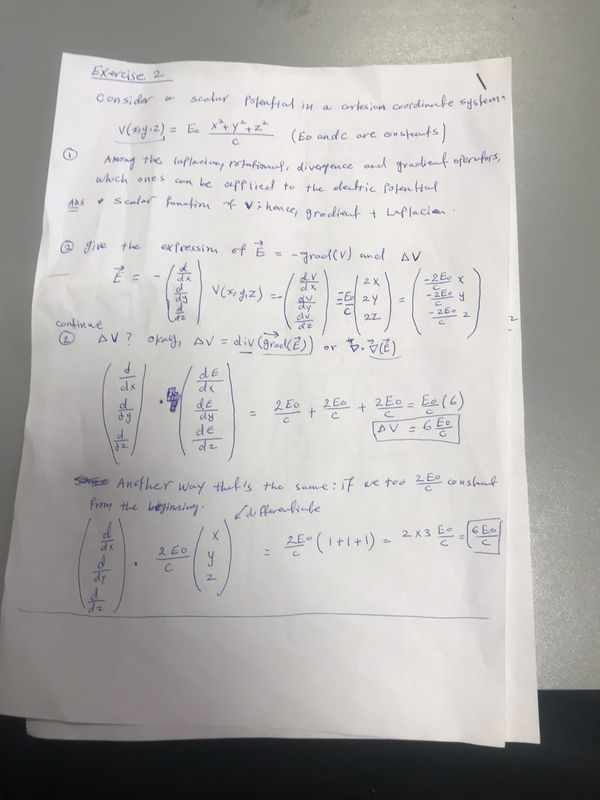 Exercise 2
Consider a scalar potential in a cartesian coordinate system:
V(x,y,z) = E₀ (x²+y²+z²)/c (E₀ and c are constants)
① Among the laplacian, rotational, divergence and gradient operators,
which ones can be applied to the electric potential
Ans • scalar function of V; hence, gradient + Laplacian.
② give the expression of E⃗ = -grad(V) and ΔV
E⃗ = - (d/dx d/dy d/dz) V(x,y,z) = - (dV/dx dV/dy dV/dz) = -E₀/c (2x 2y 2z) = (-2E₀/c x -2E₀/c y -2E₀/c z)
continue
② ΔV? okay, ΔV = div(grad(E)) or ∇⃗·∇⃗(E)
(d/dx d/dy d/dz) · (dE/dx dE/dy dE/dz) = 2E₀/c + 2E₀/c + 2E₀/c = E₀/c (6)
ΔV = 6 E₀/c
Another way that's the same: if we too 2E₀/c constant
from the beginning.
↙differentiate
(d/dx d/dy d/dz) · 2E₀/c (x y z) = 2E₀/c (1+1+1) = 2×3 E₀/c = 6E₀/c